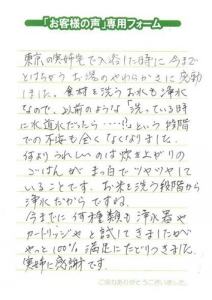 「お客様の声」専用フォーム
東京の実姉宅で入浴した時に今まで
とはちがうお湯のやわらかさに感動
しました。食材を洗うお水も浄水
なので、以前のような「洗っている時
に水道水だったら……!!」という段階
での不安も全くなくなりました。
何よりうれしいのは炊き上がりの
ごはんが まっ白でツヤツヤして
いることです。お米を洗う段階から
浄水だからですね。
今までに何種類も浄水器や
カートリッジやと試してきましたが
やっと100%満足にたどりつきました。
実姉に感謝です。
ご協力ありがとうございました。